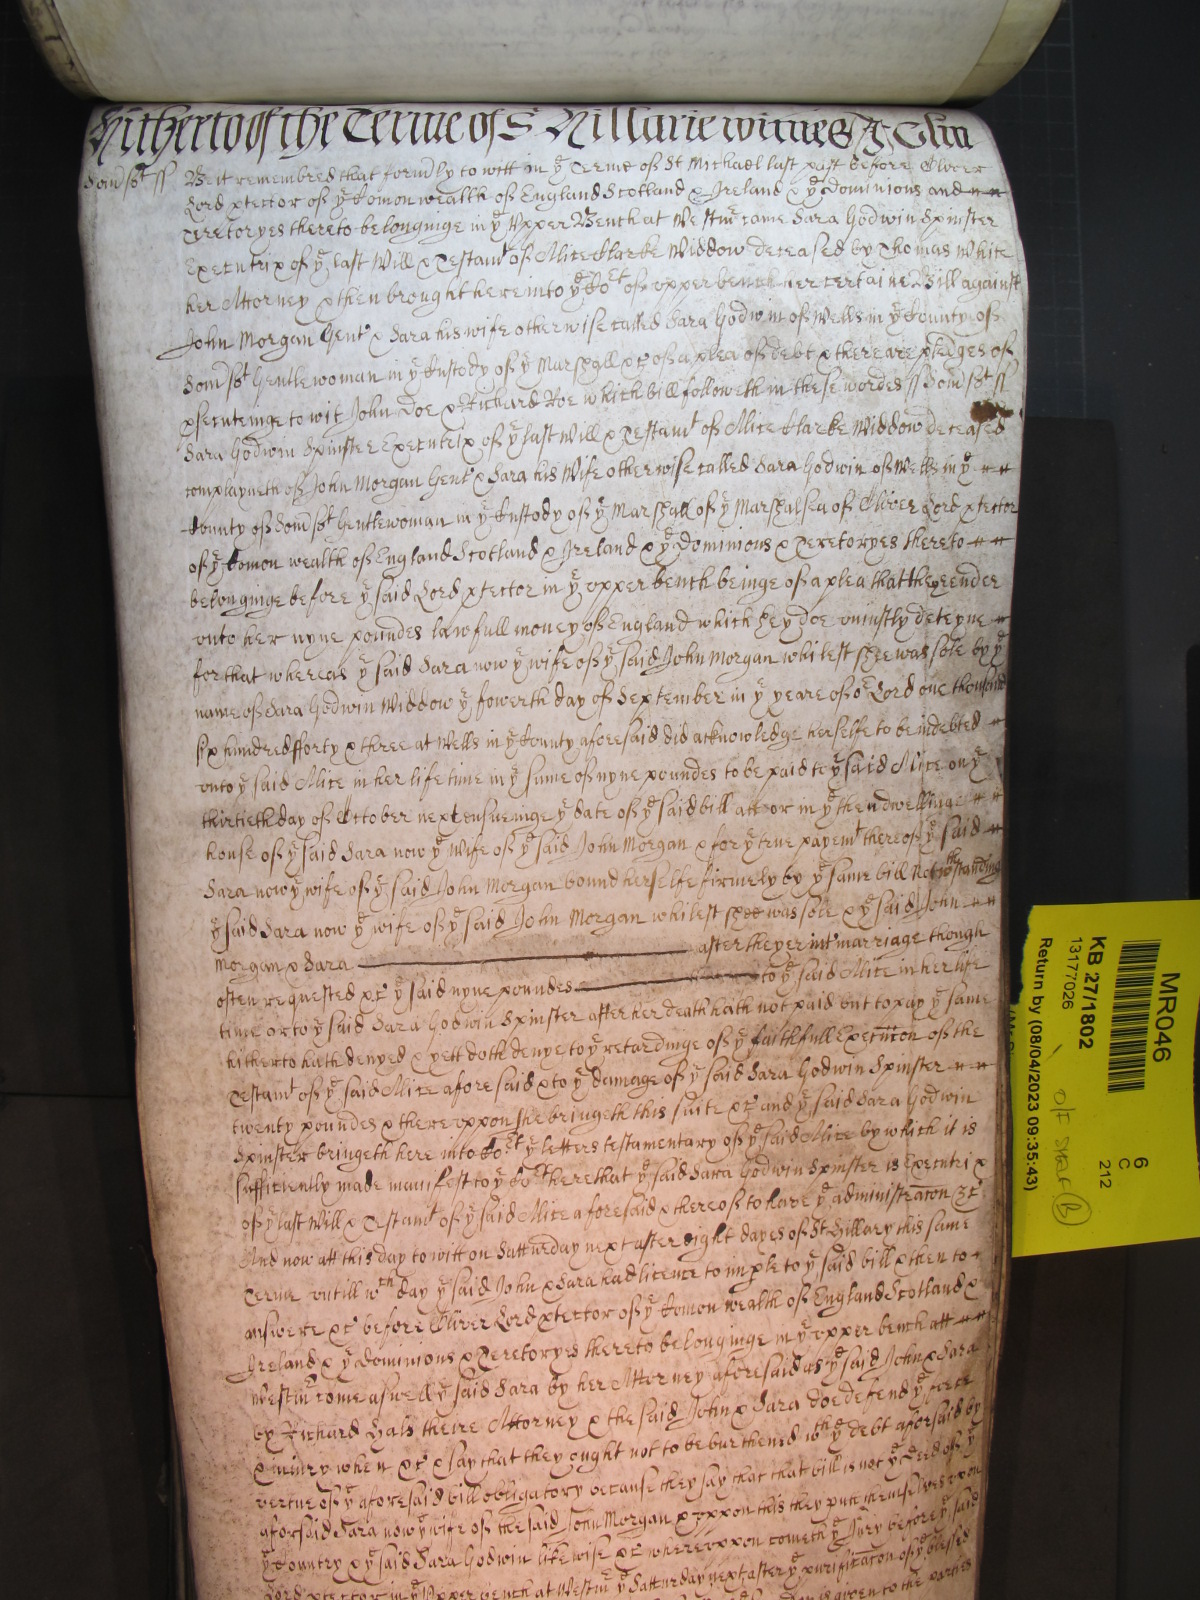 Hitherto of the Terme of St Hillarie witnes
Somst ss Be it remembred that formdly to witt in ye Terme of St Michael last past before Oliver
Lord ptector of ye Comon wealth of England Scotland & Ireland & ye Dominions and
Teretoryes thereto belonginge in ye Upper Bench at Westmr came Sara Godwin Spinster
Executrix of ye last Will & Testamt of Alice Clarke Widdow deceased by Thomas White
her Attorney & then brought here into ye Cort of upper bench her certaine Bill against
John Morgan Gent & Sara his wife otherwise called Sara Godwin of Wells in ye County of
Somst Gentlewoman in ye Custody of ye Marshall &c of a plea of debt & there are pledges of
psecuteinge to wit John Doe & Richard Roe which bill followeth in these wordes ss Somst ss
Sara Godwin Spinster Executrix of ye last Will & Testamt of Alice Clarke Widdow deceased
complayneth of John Morgan Gent & Sara his Wife otherwise called Sara Godwin of Wells in ye
County of Somst Gentlewoman in ye Custody of ye Marshall of ye Marshalsea of Oliver Lord ptector
of ye Comon wealth of England Scotland & Ireland & ye Dominions & Teretoryes thereto
belonginge before ye said Lord ptector in ye upper bench beinge of a plea that they render
unto her nyne poundes lawfull money of England which they doe uniustly deteyne
for that whereas ye said Sara now ye wife of ye said John Morgan whilest shee was sole by ye
name of Sara Godwin Widdow ye fowerth day of September in ye yeare of or Lord one thousand
six hundred fforty & three at Wells in ye County aforesaid did acknowledge herselfe to be indebted
unto ye said Alice in her life time in ye sume of nyne poundes to be paid to ye said Alice on ye
thirtieth day of October next ensueinge ye date of ye said bill att or in ye then dwellinge
house of ye said Sara now ye wife of ye said John Morgan & for ye true paymt thereof ye said
Sara now ye wife of ye said John Morgan bound herselfe firmely by ye same bill Notwthstanding
ye said Sara now ye wife of ye said John Morgan whilest shee was sole & ye said John
Morgan & Sara after the marriage though
often requested &c ye said nyne poundes to ye said Alice in her life
time or to ye said Sara Godwin Spinster after her death hath not paid but to pay ye same
hitherto hath denyed & yett doth denye to ye retardinge of ye faithfull Execucon of the
Testamt of ye said Alice aforesaid & to ye damage of ye said Sara Godwin Spinster
twenty poundes & thereuppon she bringeth this suite &c and ye said Sara Godwin
Spinster bringeth here into Cort ye letters testamentary of ye said Alice by which it is
sufficiently made manifest to ye Cort here that ye said Sara Godwin Spinster is Executrix
of ye last Will & Testamt of ye said Alice aforesaid & thereof to have ye administracon &c
And now att this day to witt on Satturday next after eight dayes of St Hillary this same
Terme untill wch day ye said John & Sara had licence to imple to ye said bill & then to
answere &c before Oliver Lord ptector of ye Comon wealth of England Scotland &
Ireland & ye Dominions & Teretoryes thereto belonginge in ye upper bench att
Westmr come aswell ye said Sara by her Attorney aforesaid as ye said John & Sara
by Richard Hals theire Attorney & the said John & Sara doe defend ye force
& iniury when &c & say that they ought not to be burthened wth ye debt aforsaid by
vertue of ye aforesaid bill obligatory because they say that that bill is not ye deed of ye
aforsaid Sara now ye wife of the said John Morgan & uppon this they putt themselves upon
ye Country & ye said Sara Godwin likewise &c whereuppon cometh ye Jury before ye said
Lord ptector in ye Upper bench at Westmr ye Satturday next after ye purificacon of ye blessed
is given to the parties
MR046
KB 27/1802
13177026
Return by (08/04/2023 09:35:43)
6
C
212